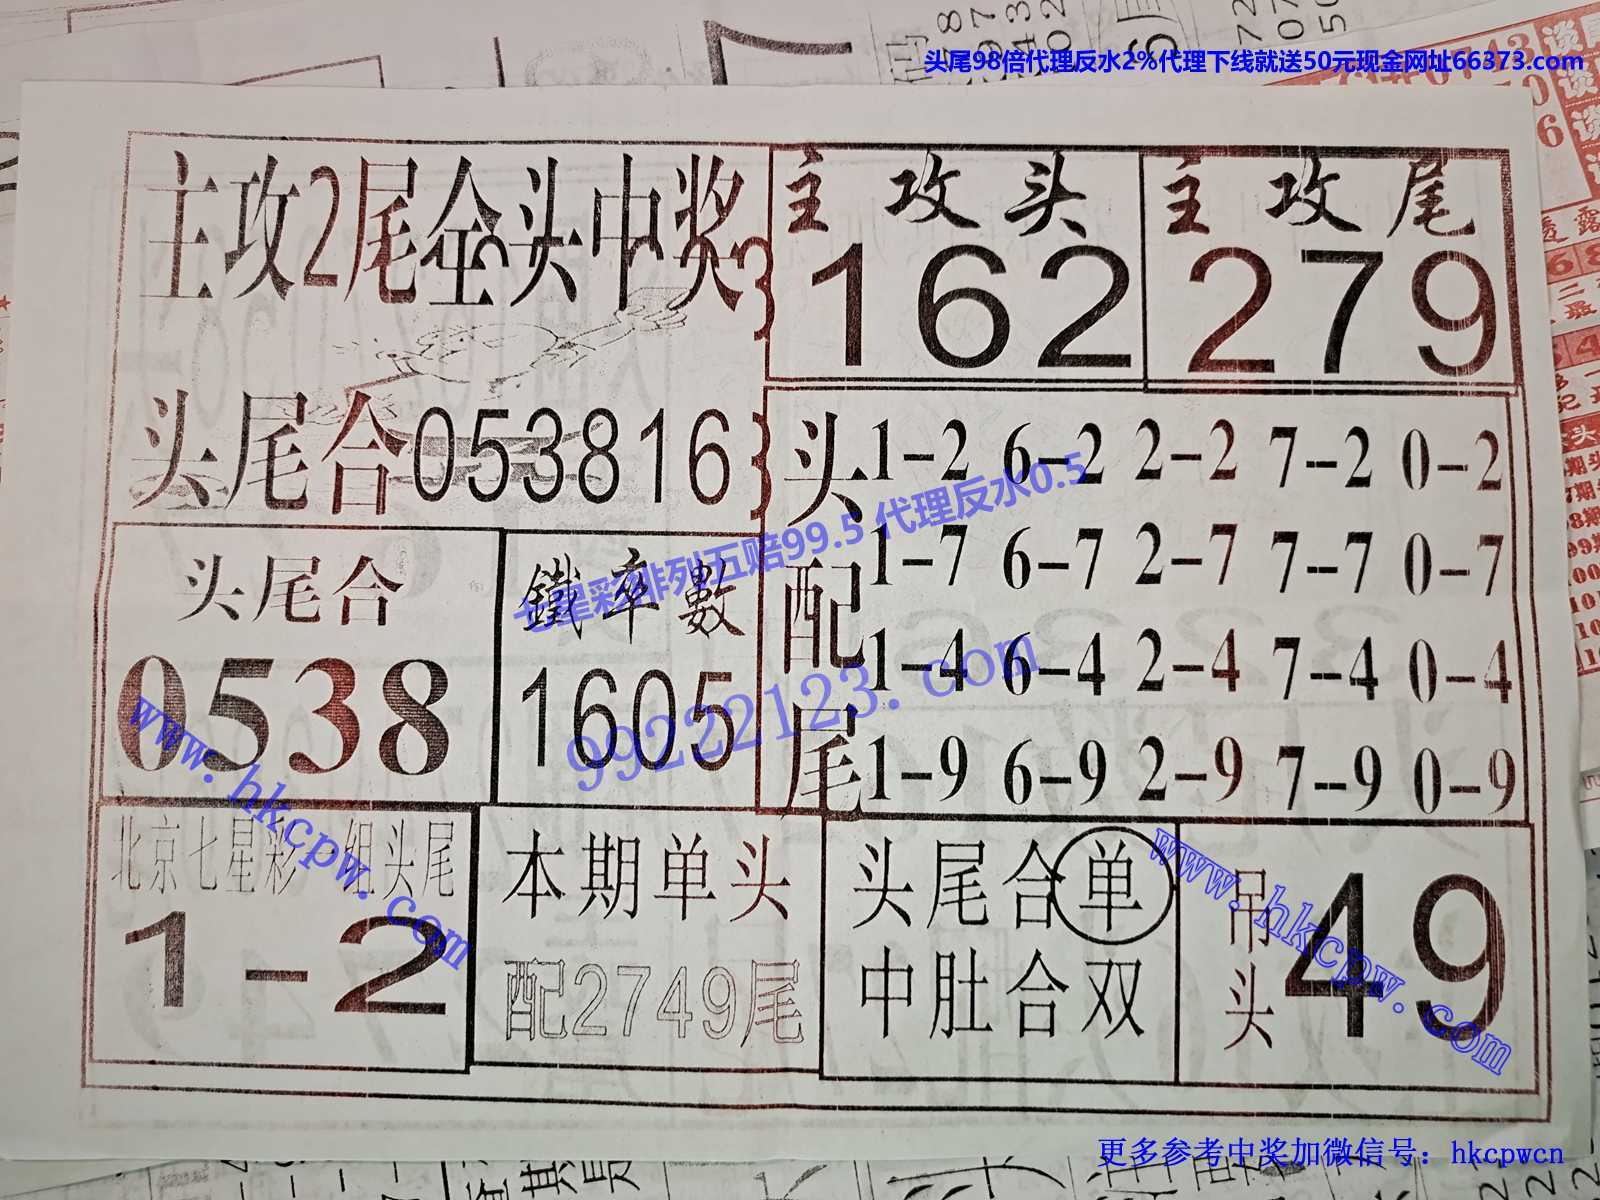 头尾98倍代理反水2%代理下线就送50元现金网址66373.com
主攻2尾全头中奖
主攻头
162
主攻尾
279
头尾合053816
头配尾
1-2 6-2 2-2 7--2 0-2
1-7 6-7 2-7 7--7 0-7
1-4 6-4 2-4 7--4 0-4
1-9 6-9 2-9 7--9 0-9
七星彩排列五赔99.5 代理反水0.5
99222123.com
头尾合
0538
鐵率數
1605
www.hkcpw.com
北京七星彩一组头尾
1-2
本期单头
配2749尾
头尾合单
中肚合双
吊头
49
www.hkcpw.com
更多参考中奖加微信号：hkcpwcn